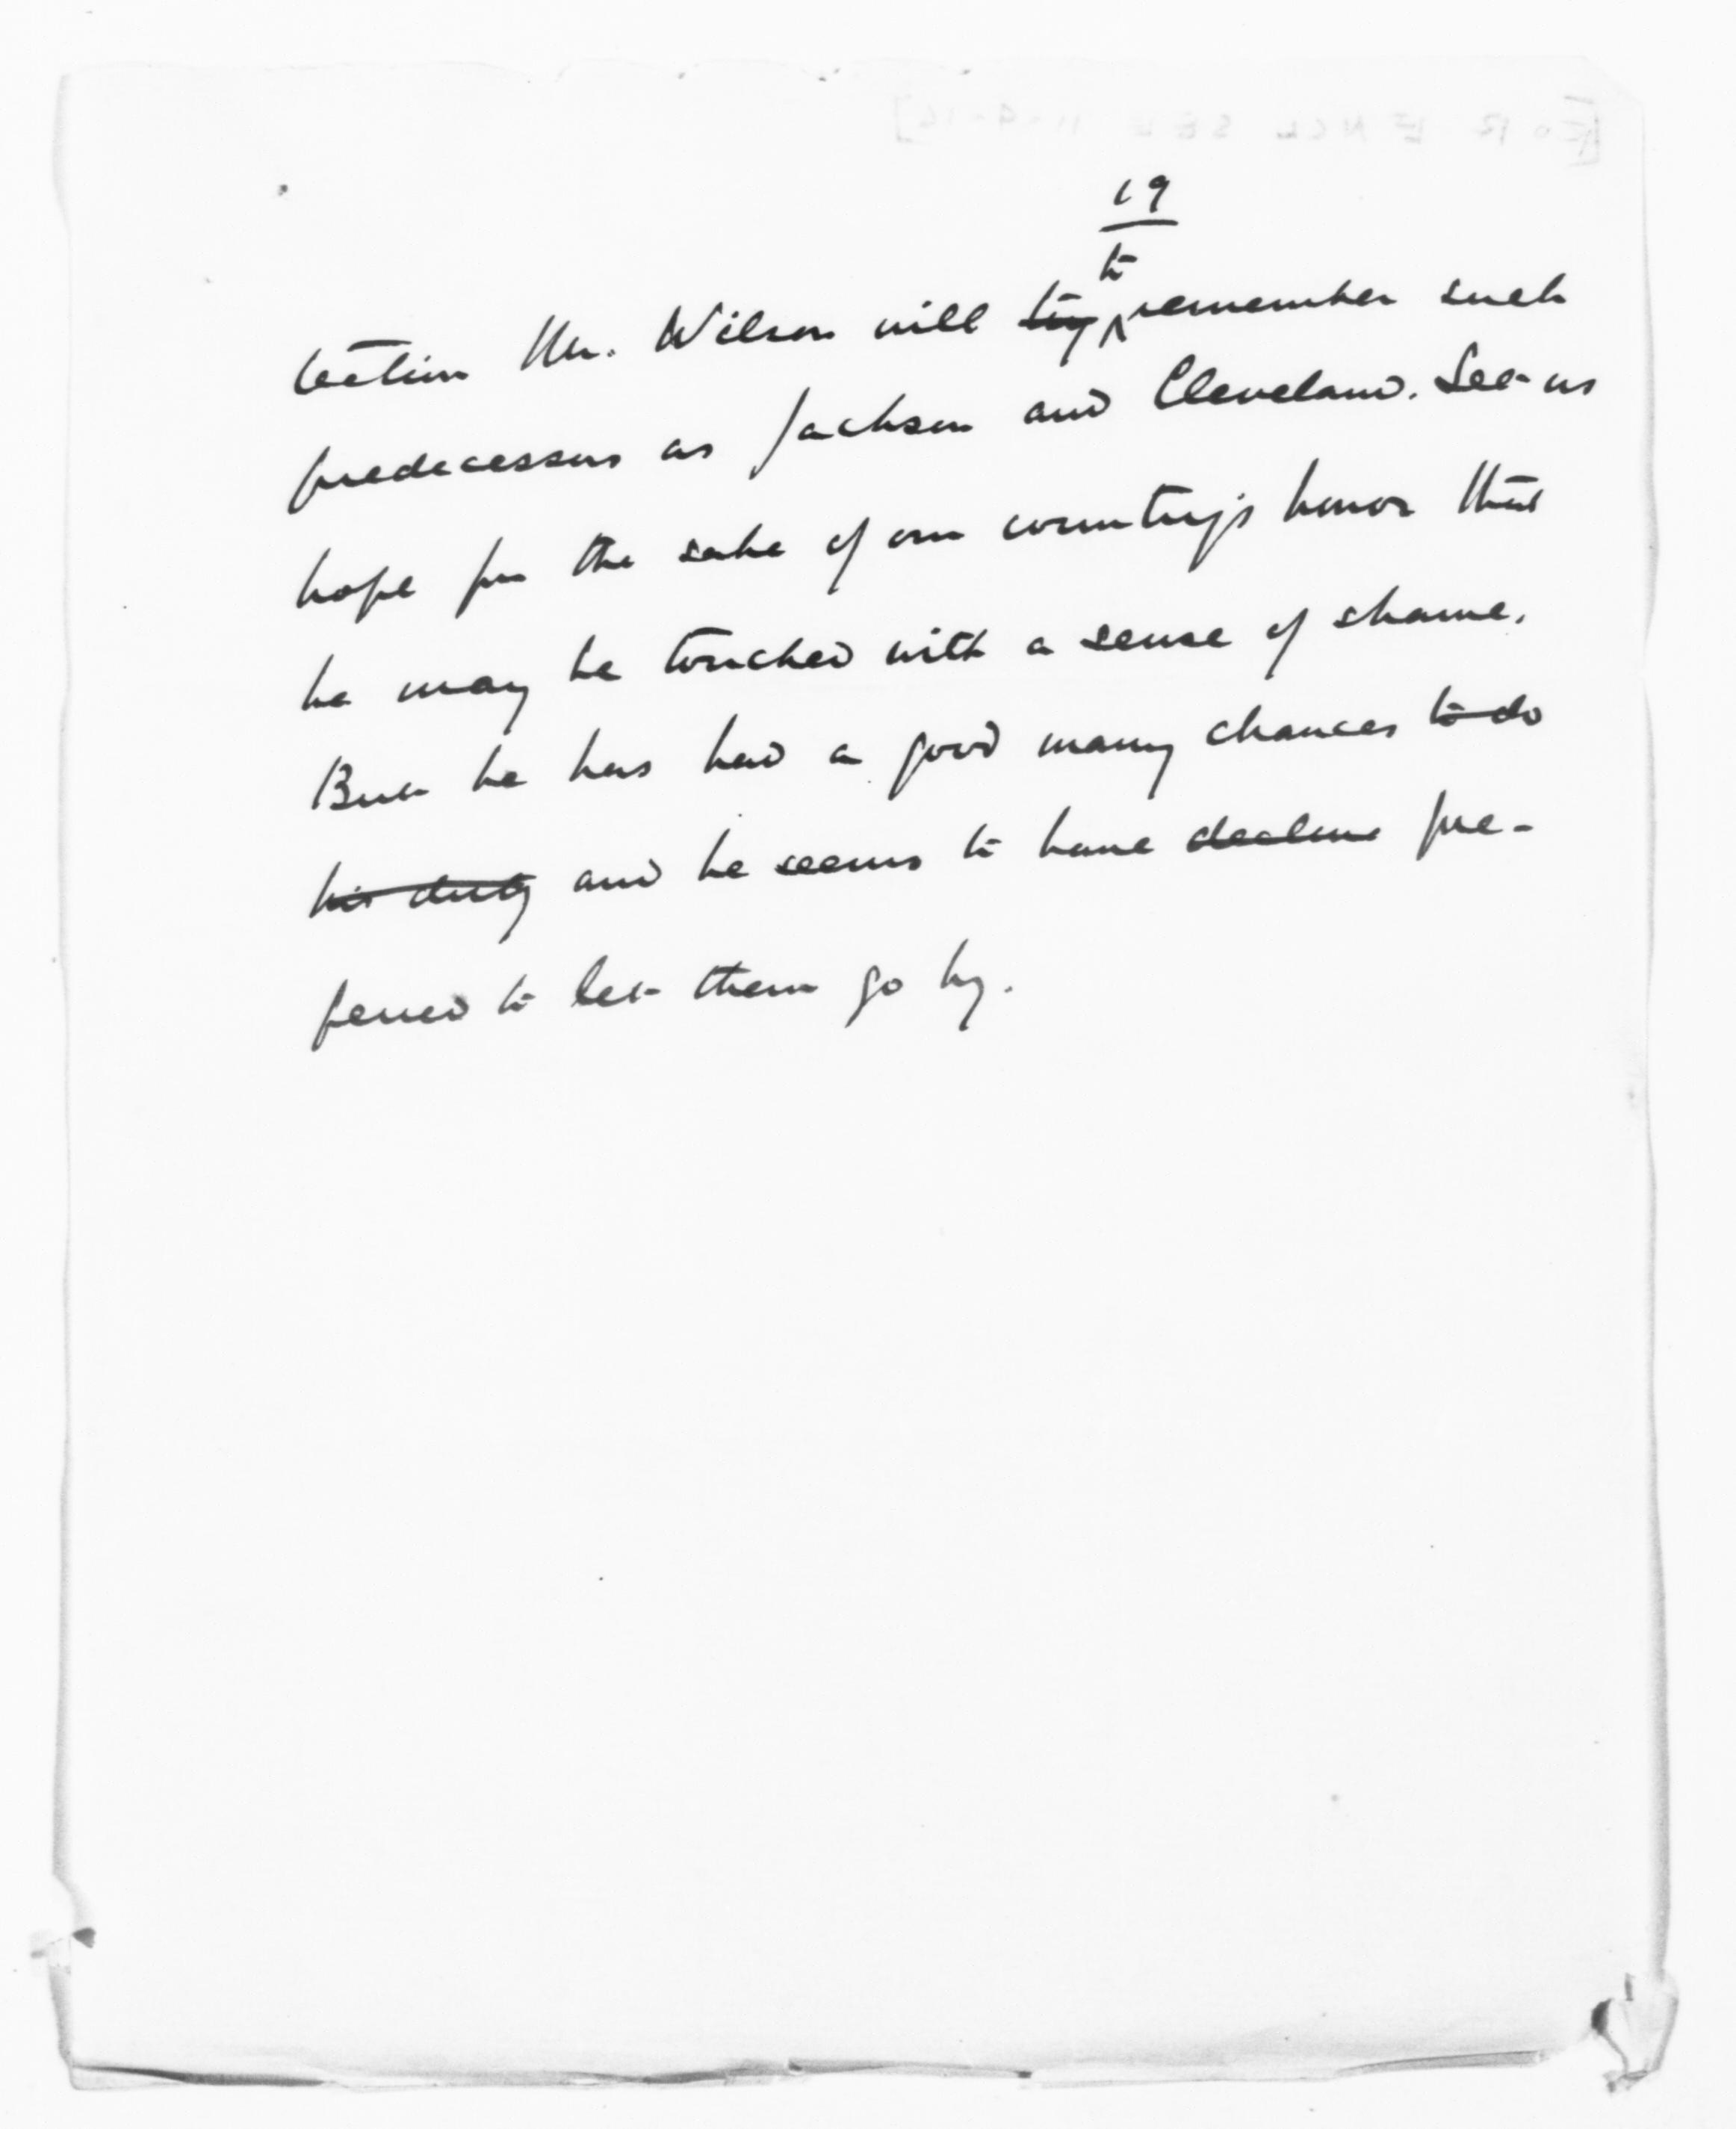 [FOR ENCL SEE 11-9-16]
19
to
tection Mr. Wilson will try remember such
predecessors as Jackson and Cleveland. Let us
hope for the sake of our country's honor that
he may be touched with a sense of shame.
But he has had a good many chances to do
his duty and he seems to have decline pre-
ferred to let them go by.